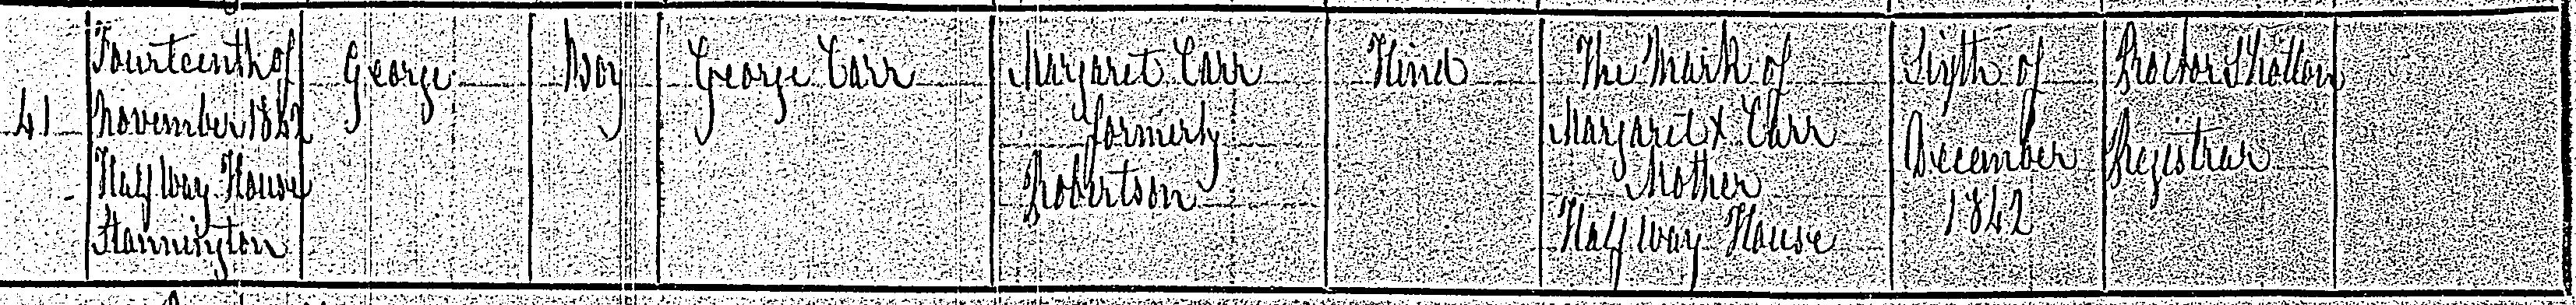 41
Fourteenth of
November 1842
Half Way House
Stannington
George
Boy
George Carr
Margaret Carr
formerly
Robertson
Hind
The Mark of
Margaret X Carr
Mother
Half Way House
Sixth of
December
1842
Registrar